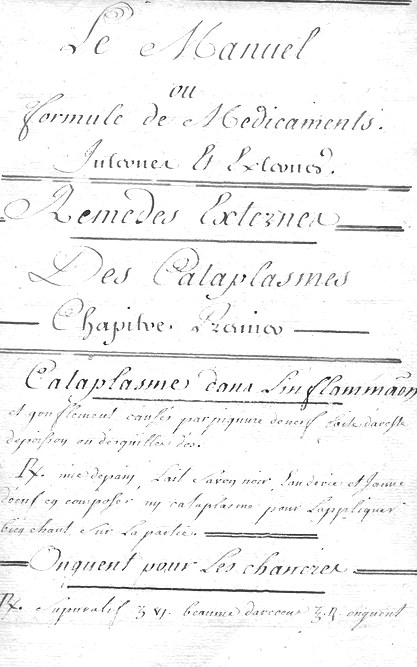 Le Manuel
ou
formule de Medicaments.
Internes Et Externes.
Remedes Externes
Des Cataplasmes
Chapitre Premier
Cataplasme dans L'inflammāon
et gonflement causés par piquure de nerf faite
de poisson ou
Rx. mie de pain, Lait Savon noir, et Jaune
d'oeuf eq composer un cataplasme pour L'appliquer
bien chaut Sur La partie.
Onguent pour Les chancres
Rx. Supuratif ʒ baume darceus onguent